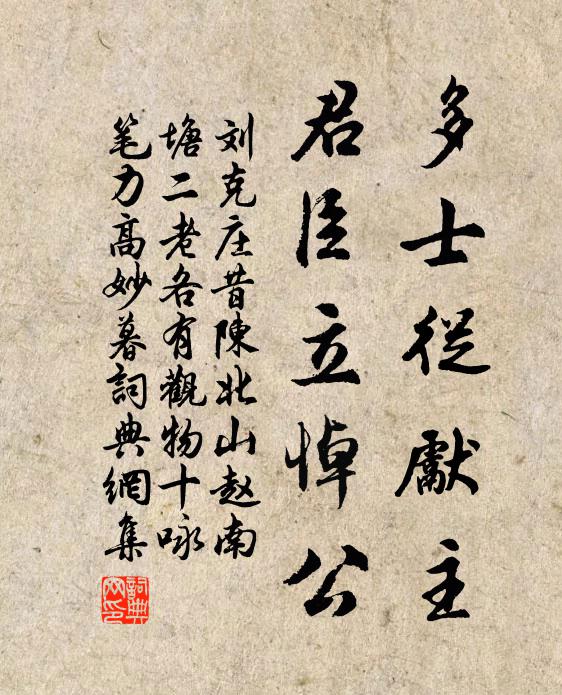 多士從獻主
君臣立悼公
刘克庄昔陳北山赵南
塘二老各有觀物十咏
笔力高妙暮詞典網集
詞典